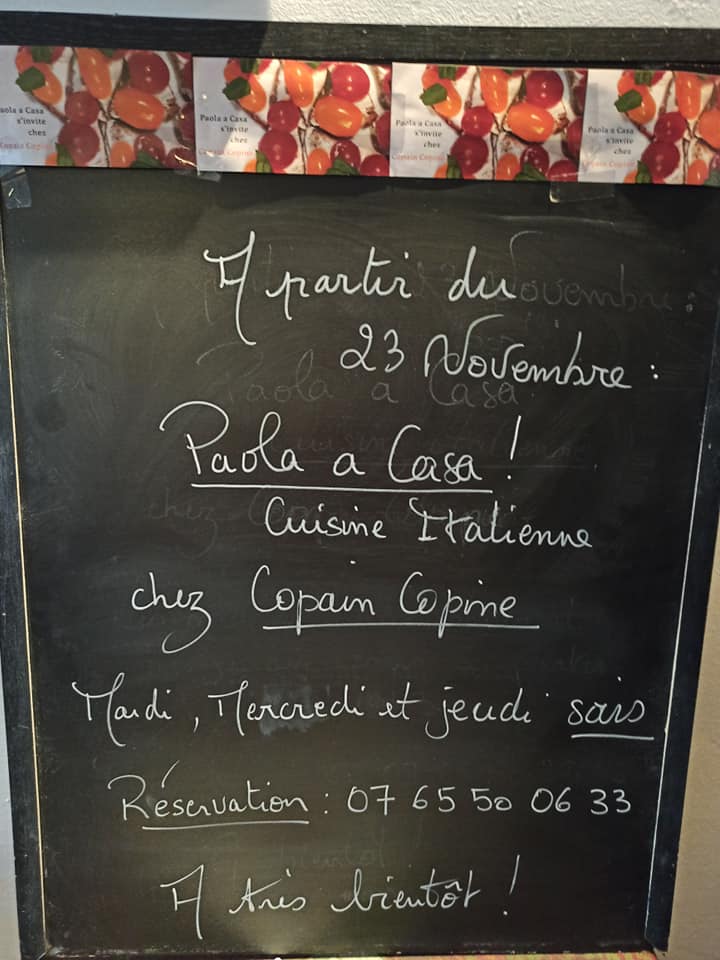 Paola a Casa
s'invite
chez
Copain Copine
Paola a Casa
s'invite
chez
Copain Copine
Paola a Casa
s'invite
chez
Copain Copine
Paola a Casa
s'invite
chez
Copain Copine
A partir du
23 Novembre :
Paola a Casa !
Cuisine Italienne
chez Copain Copine
Mardi, Mercredi et jeudi soirs
Réservation : 07 65 50 06 33
A très bientôt !